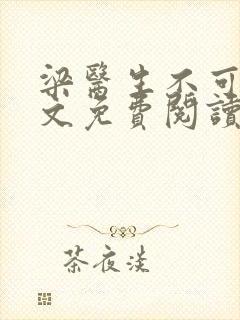 梁醫生不可
文免費閱讀
茶夜淡